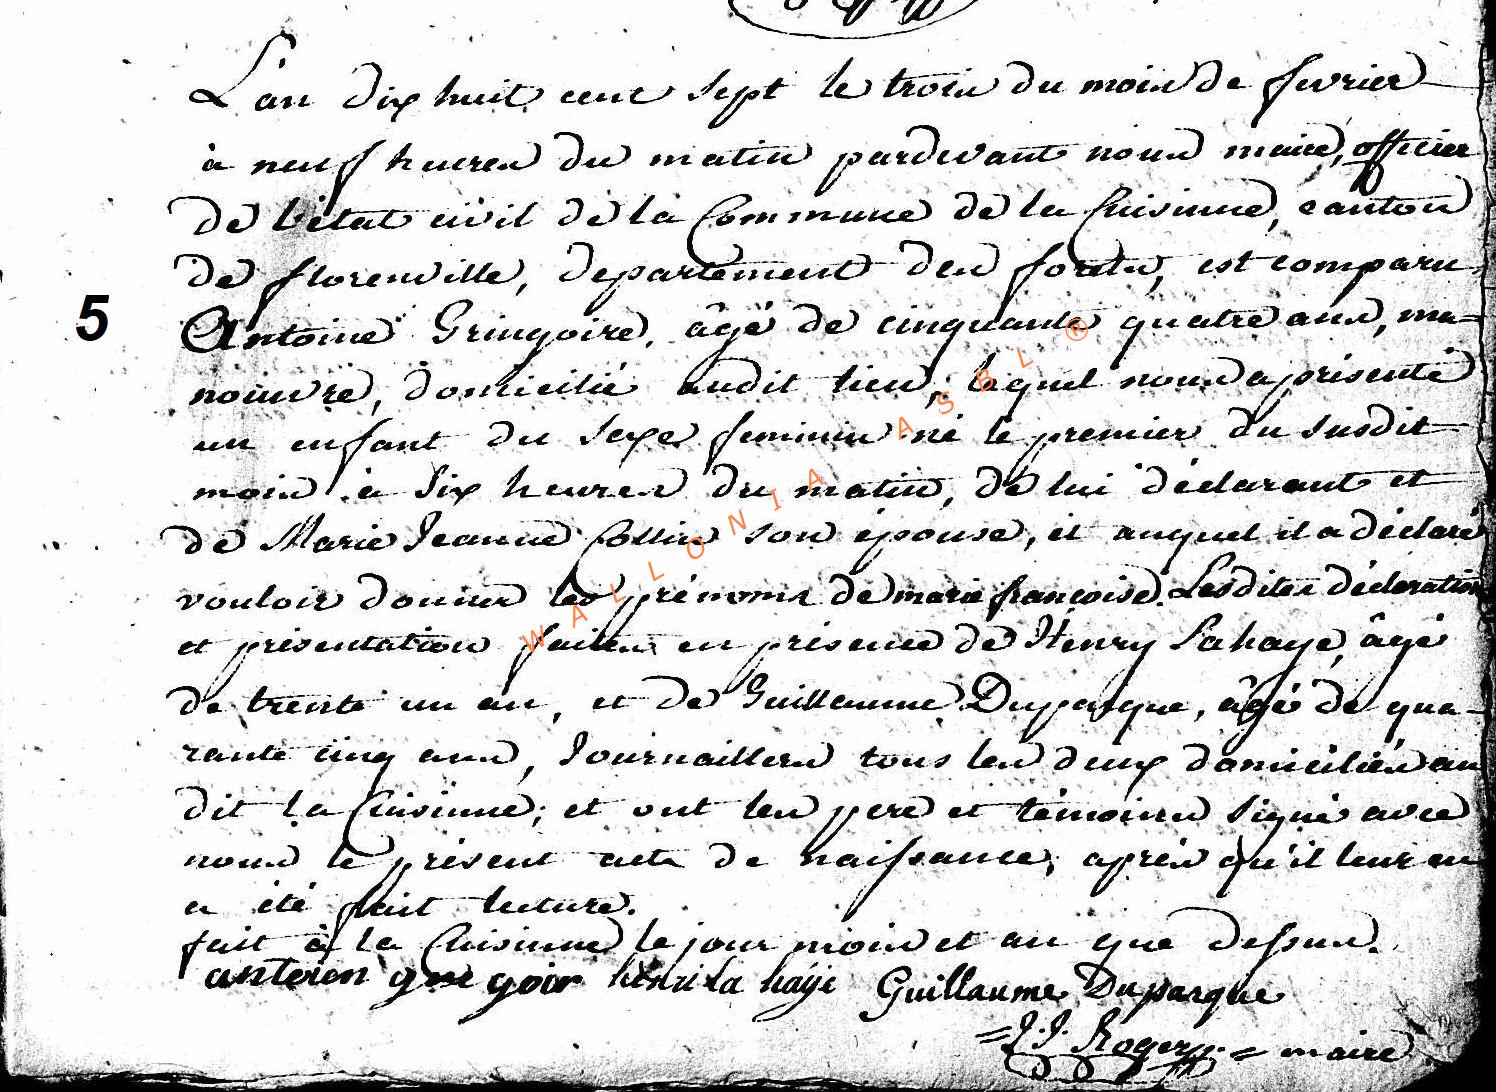 L'an dix huit cent sept le trois du mois de fevrier
à neuf heures du matin pardevant nous maire, officier
de l'état civil de la Commune de la Cuisinne, canton
de florenville, departement des forets, est comparu
5
Antoine Gringoire, âgé de cinquante quatre ans, ma=
noeuvre, domicilié audit lieu, lequel nous a présenté
un enfant du sexe feminin né le premier du susdit
mois à six heures du matin, de lui déclarant et
de Marie Jeanne Collin son épouse, et auquel il a déclaré
vouloir donner les prénoms de marie françoise. Lesdites déclaration
et présentation faites en présence de Henry Lahaye, âgé
de trente un an, et de Guillaume Duparque, âgé de qua-
rante cinq ans, Journailliers tous les deux domiciliés au
dit la Cuisinne; et ont les pere et témoins signé avec
nous le présent acte de naissance, après qu'il leur en
a été fait lecture.
fait à la Cuisinne le jour mois et an que dessus.
antoien gregoir henri la haye Guillaume Duparque
=J.J. Roger= maire
WALLONIA ASBL ®